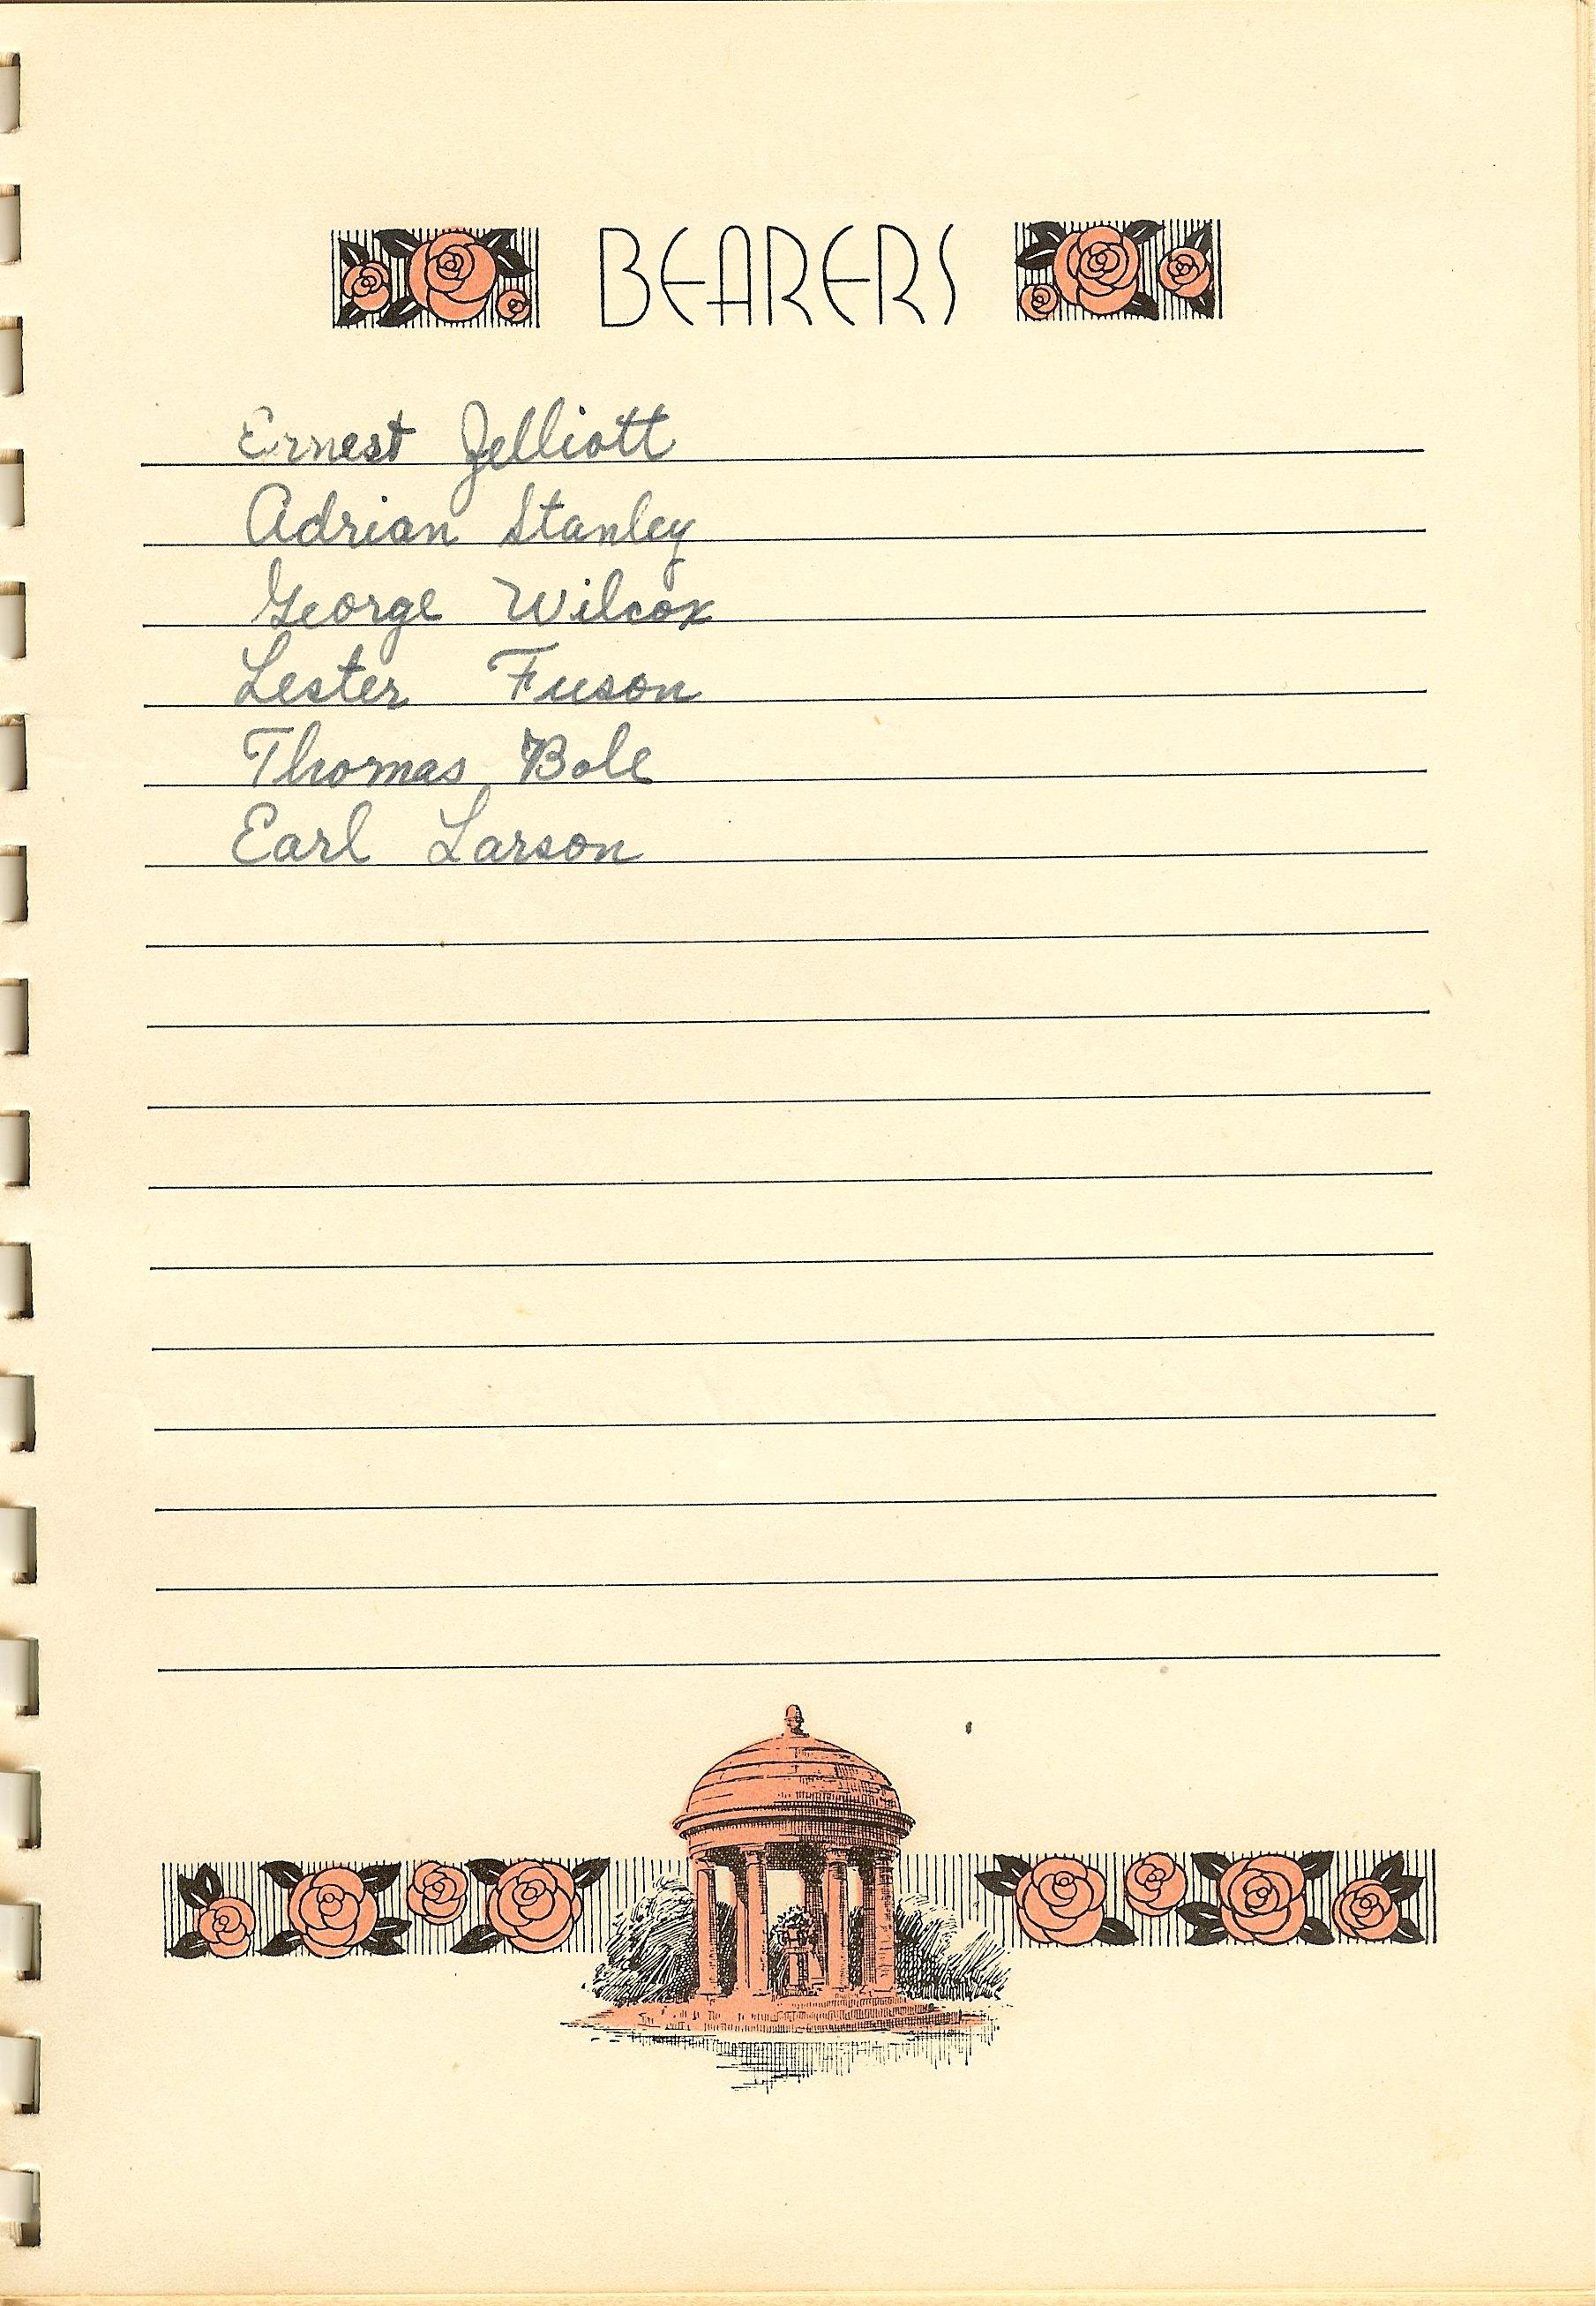 BEARERS
Ernest Jelliott
Adrian Stanley
George Wilcox
Lester Fuson
Thomas Bole
Earl Larson